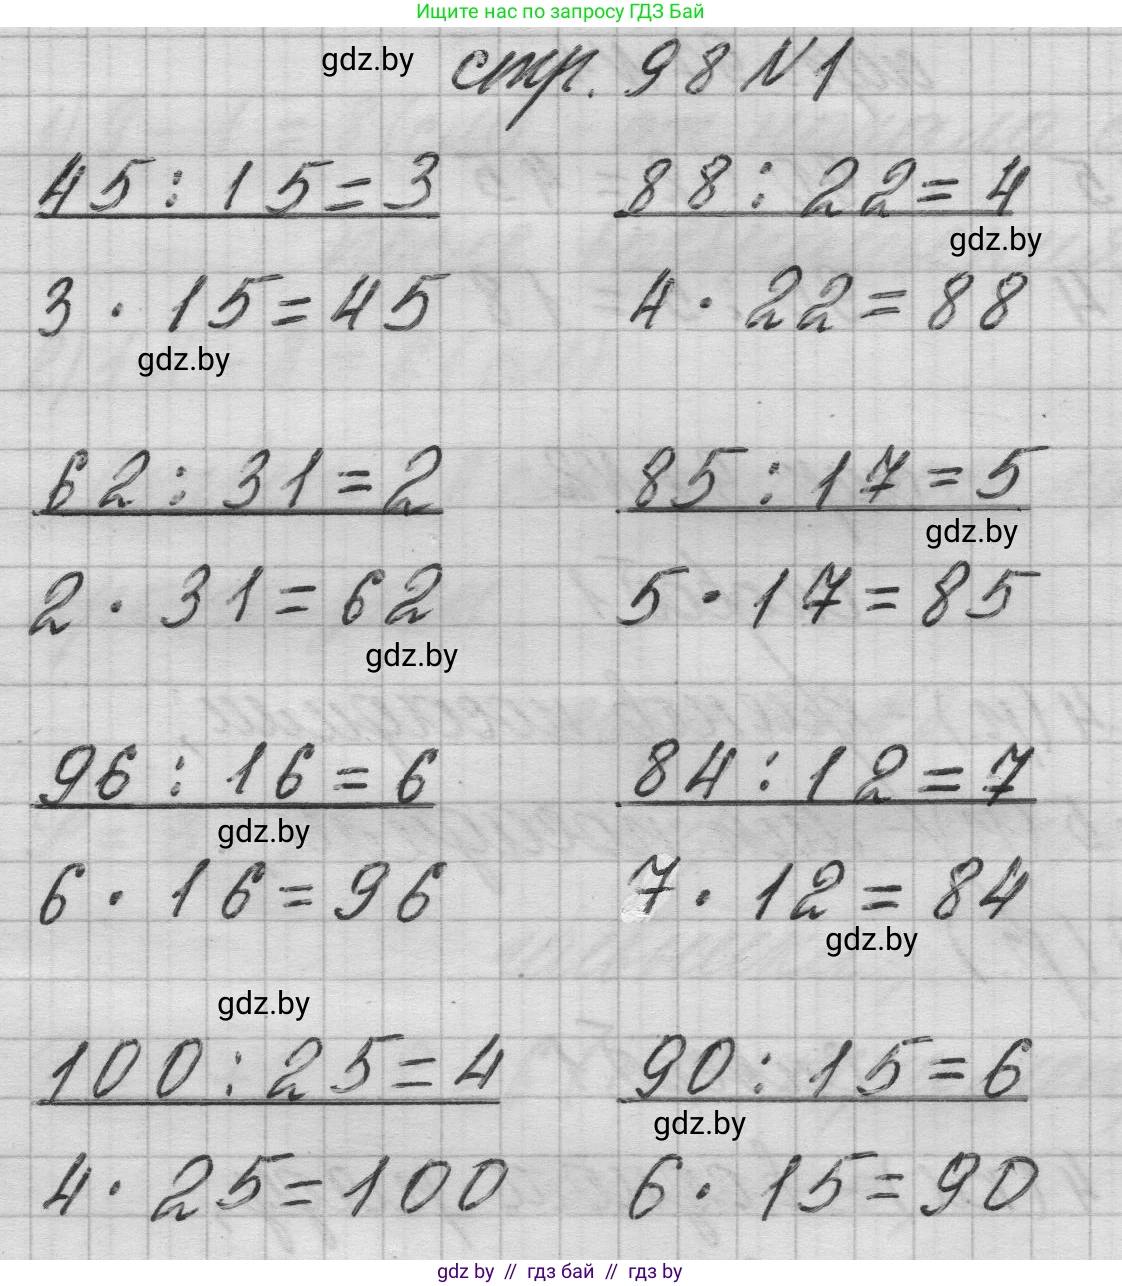 Ищите нас по запросу ГДЗ Бай
gdz.by стр. 98 №1
45 : 15 = 3 88 : 22 = 4
gdz.by
3 · 15 = 45 4 · 22 = 88
gdz.by
62 : 31 = 2 85 : 17 = 5
gdz.by
2 · 31 = 62 5 · 17 = 85
gdz.by
96 : 16 = 6 84 : 12 = 7
gdz.by
6 · 16 = 96 7 · 12 = 84
gdz.by
gdz.by
100 : 25 = 4 90 : 15 = 6
gdz.by
4 · 25 = 100 6 · 15 = 90
gdz by // гдз бай // гдз by